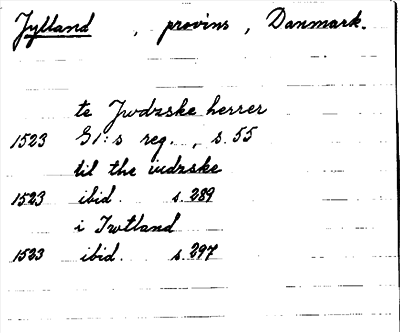 Jylland, provins, Danmark.
te Jwdzske herrer
1523 G1:s reg., s. 55
til the iudzske
1523 ibid. s. 289
i Jwtland
1523 ibid. s. 297